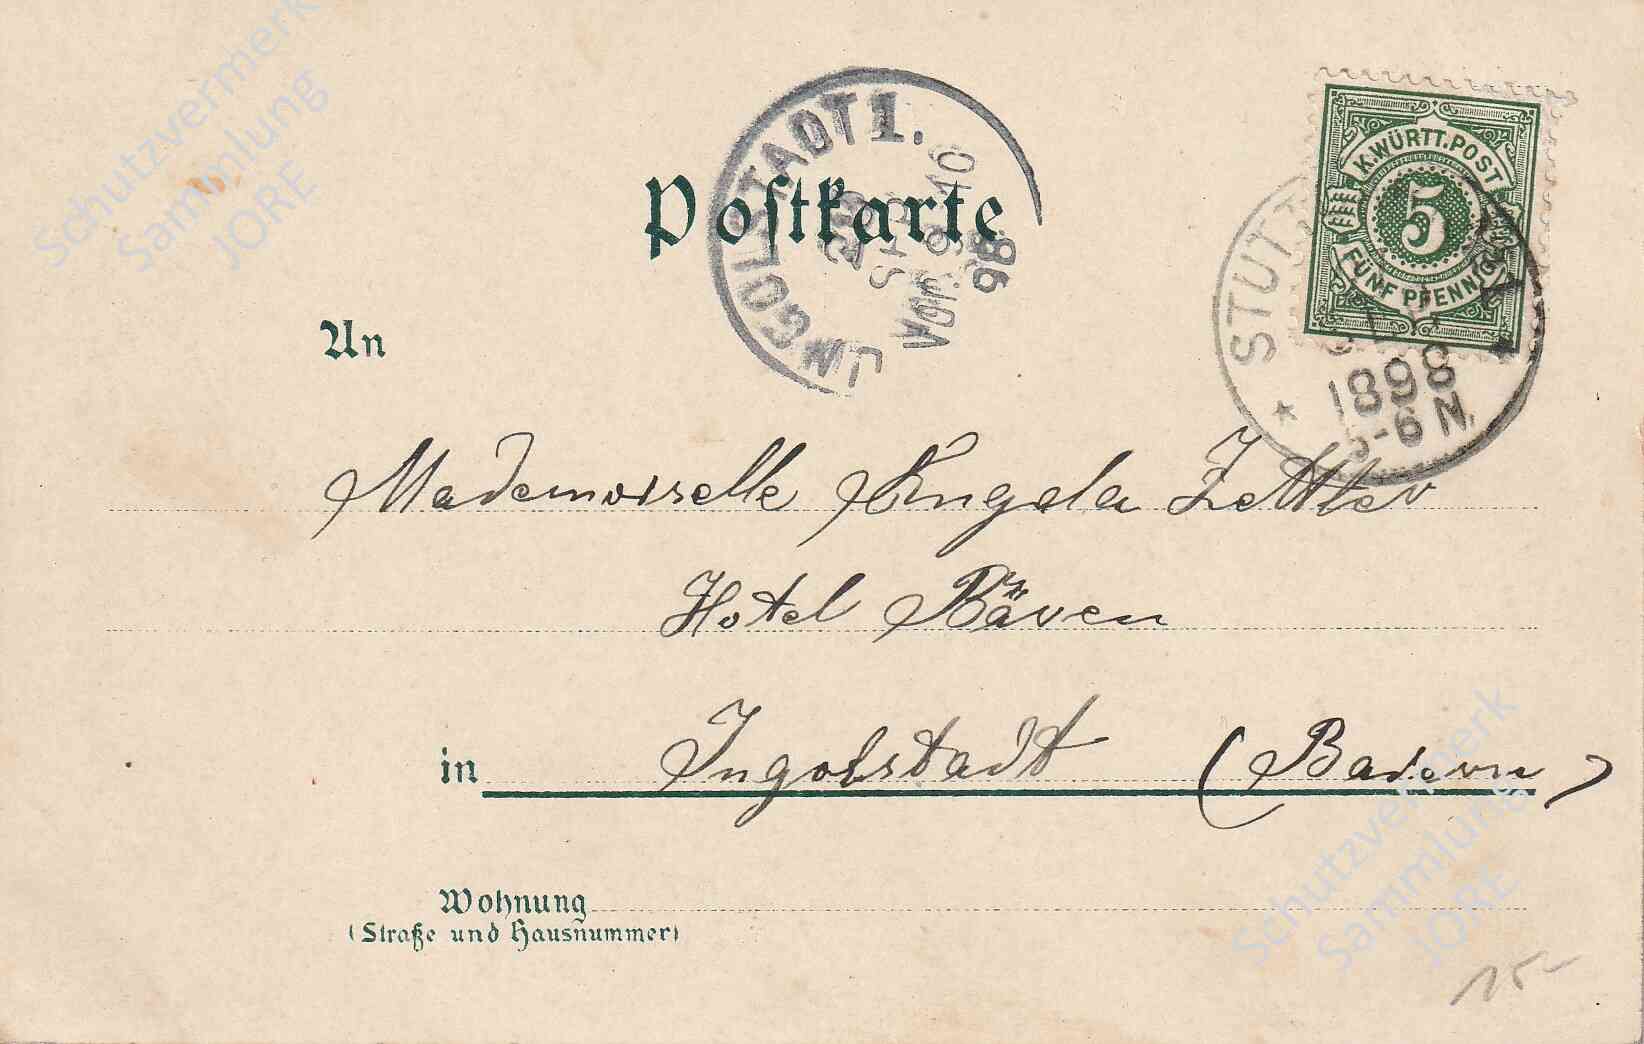 Schutzvermerk
Sammlung
JORE
Postkarte
INGOLSTADT 1.
SEP.
VOR. 9-10
98
K.WÜRTT.POST
5
FÜNF PFENNIG
STUTT
1898
5-6 N.
An
Mademoiselle Angela Zettler
Hotel Bären
in Ingolstadt (Baiern)
Wohnung
(Straße und Hausnummer)
Schutzvermerk
Sammlung
JORE
15-